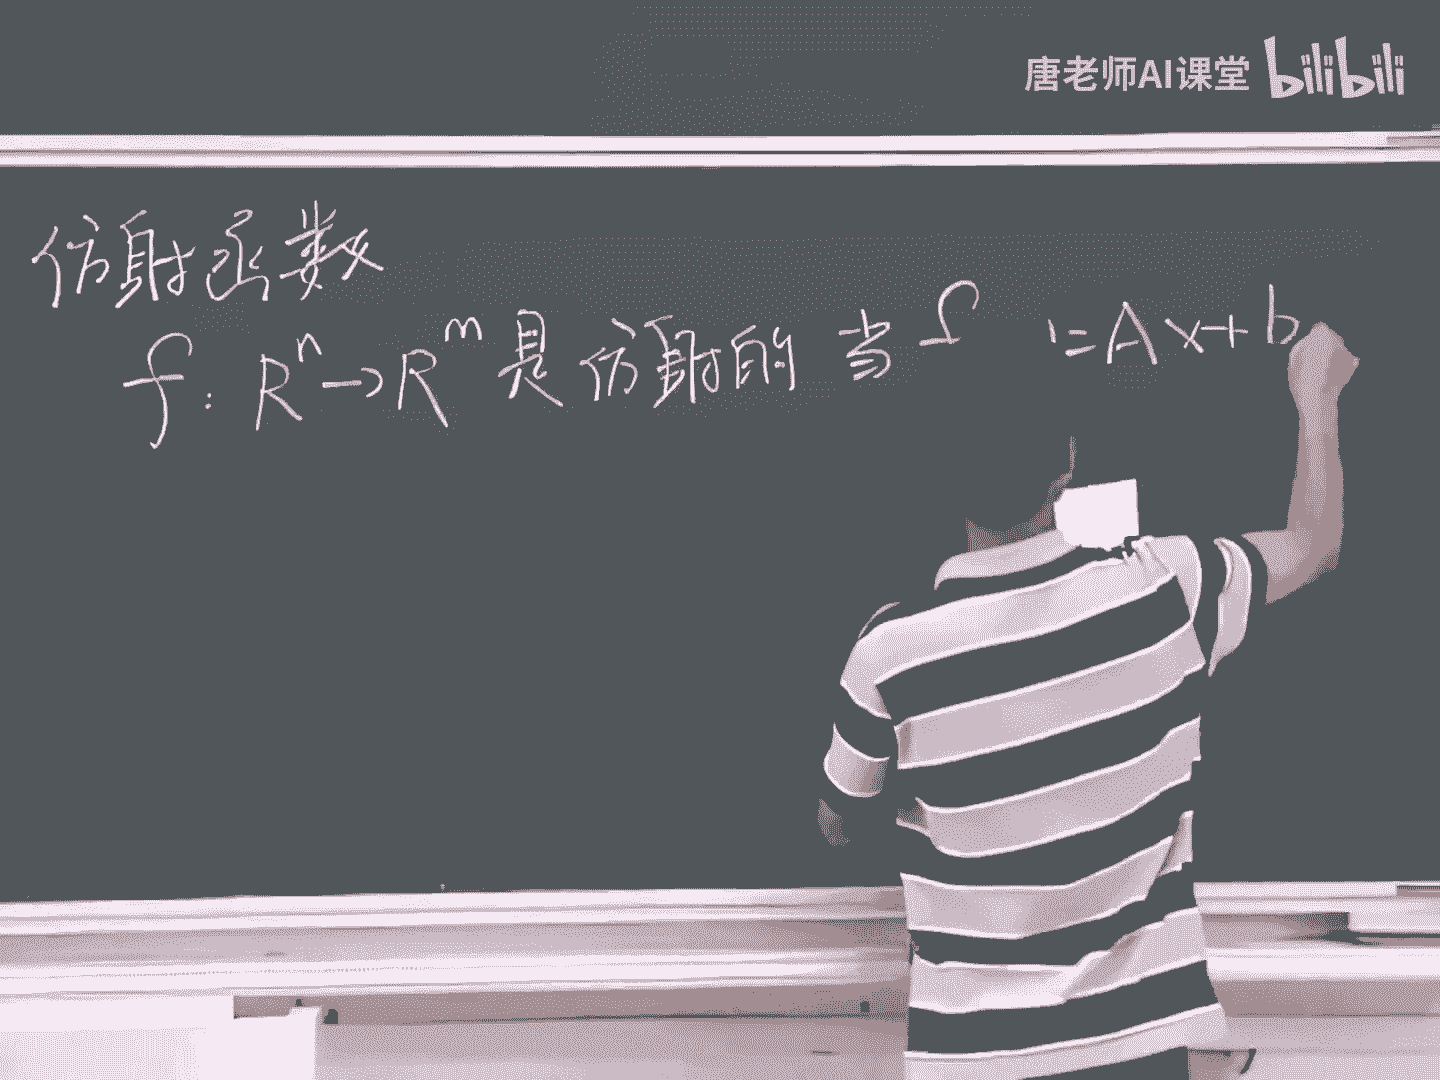 唐老师AI课堂 bilibili
仿射函数
f: Rⁿ→Rᵐ 是仿射的 当 f =Ax+b